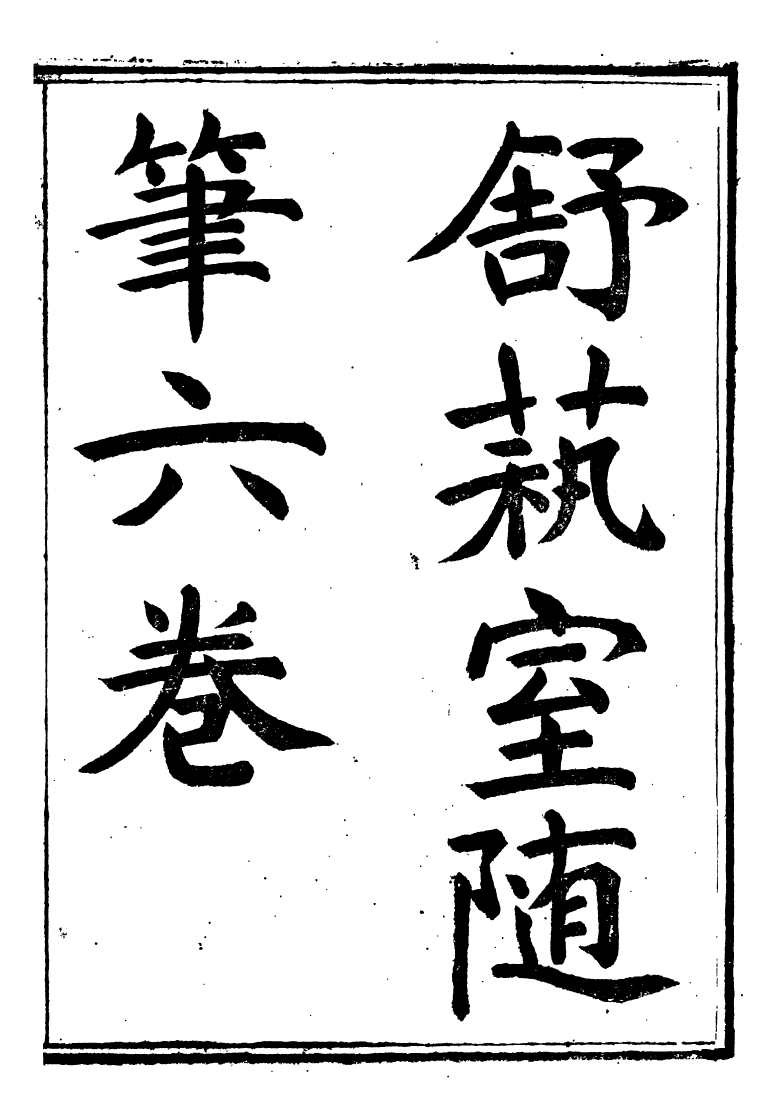 舒萟室随
筆六卷